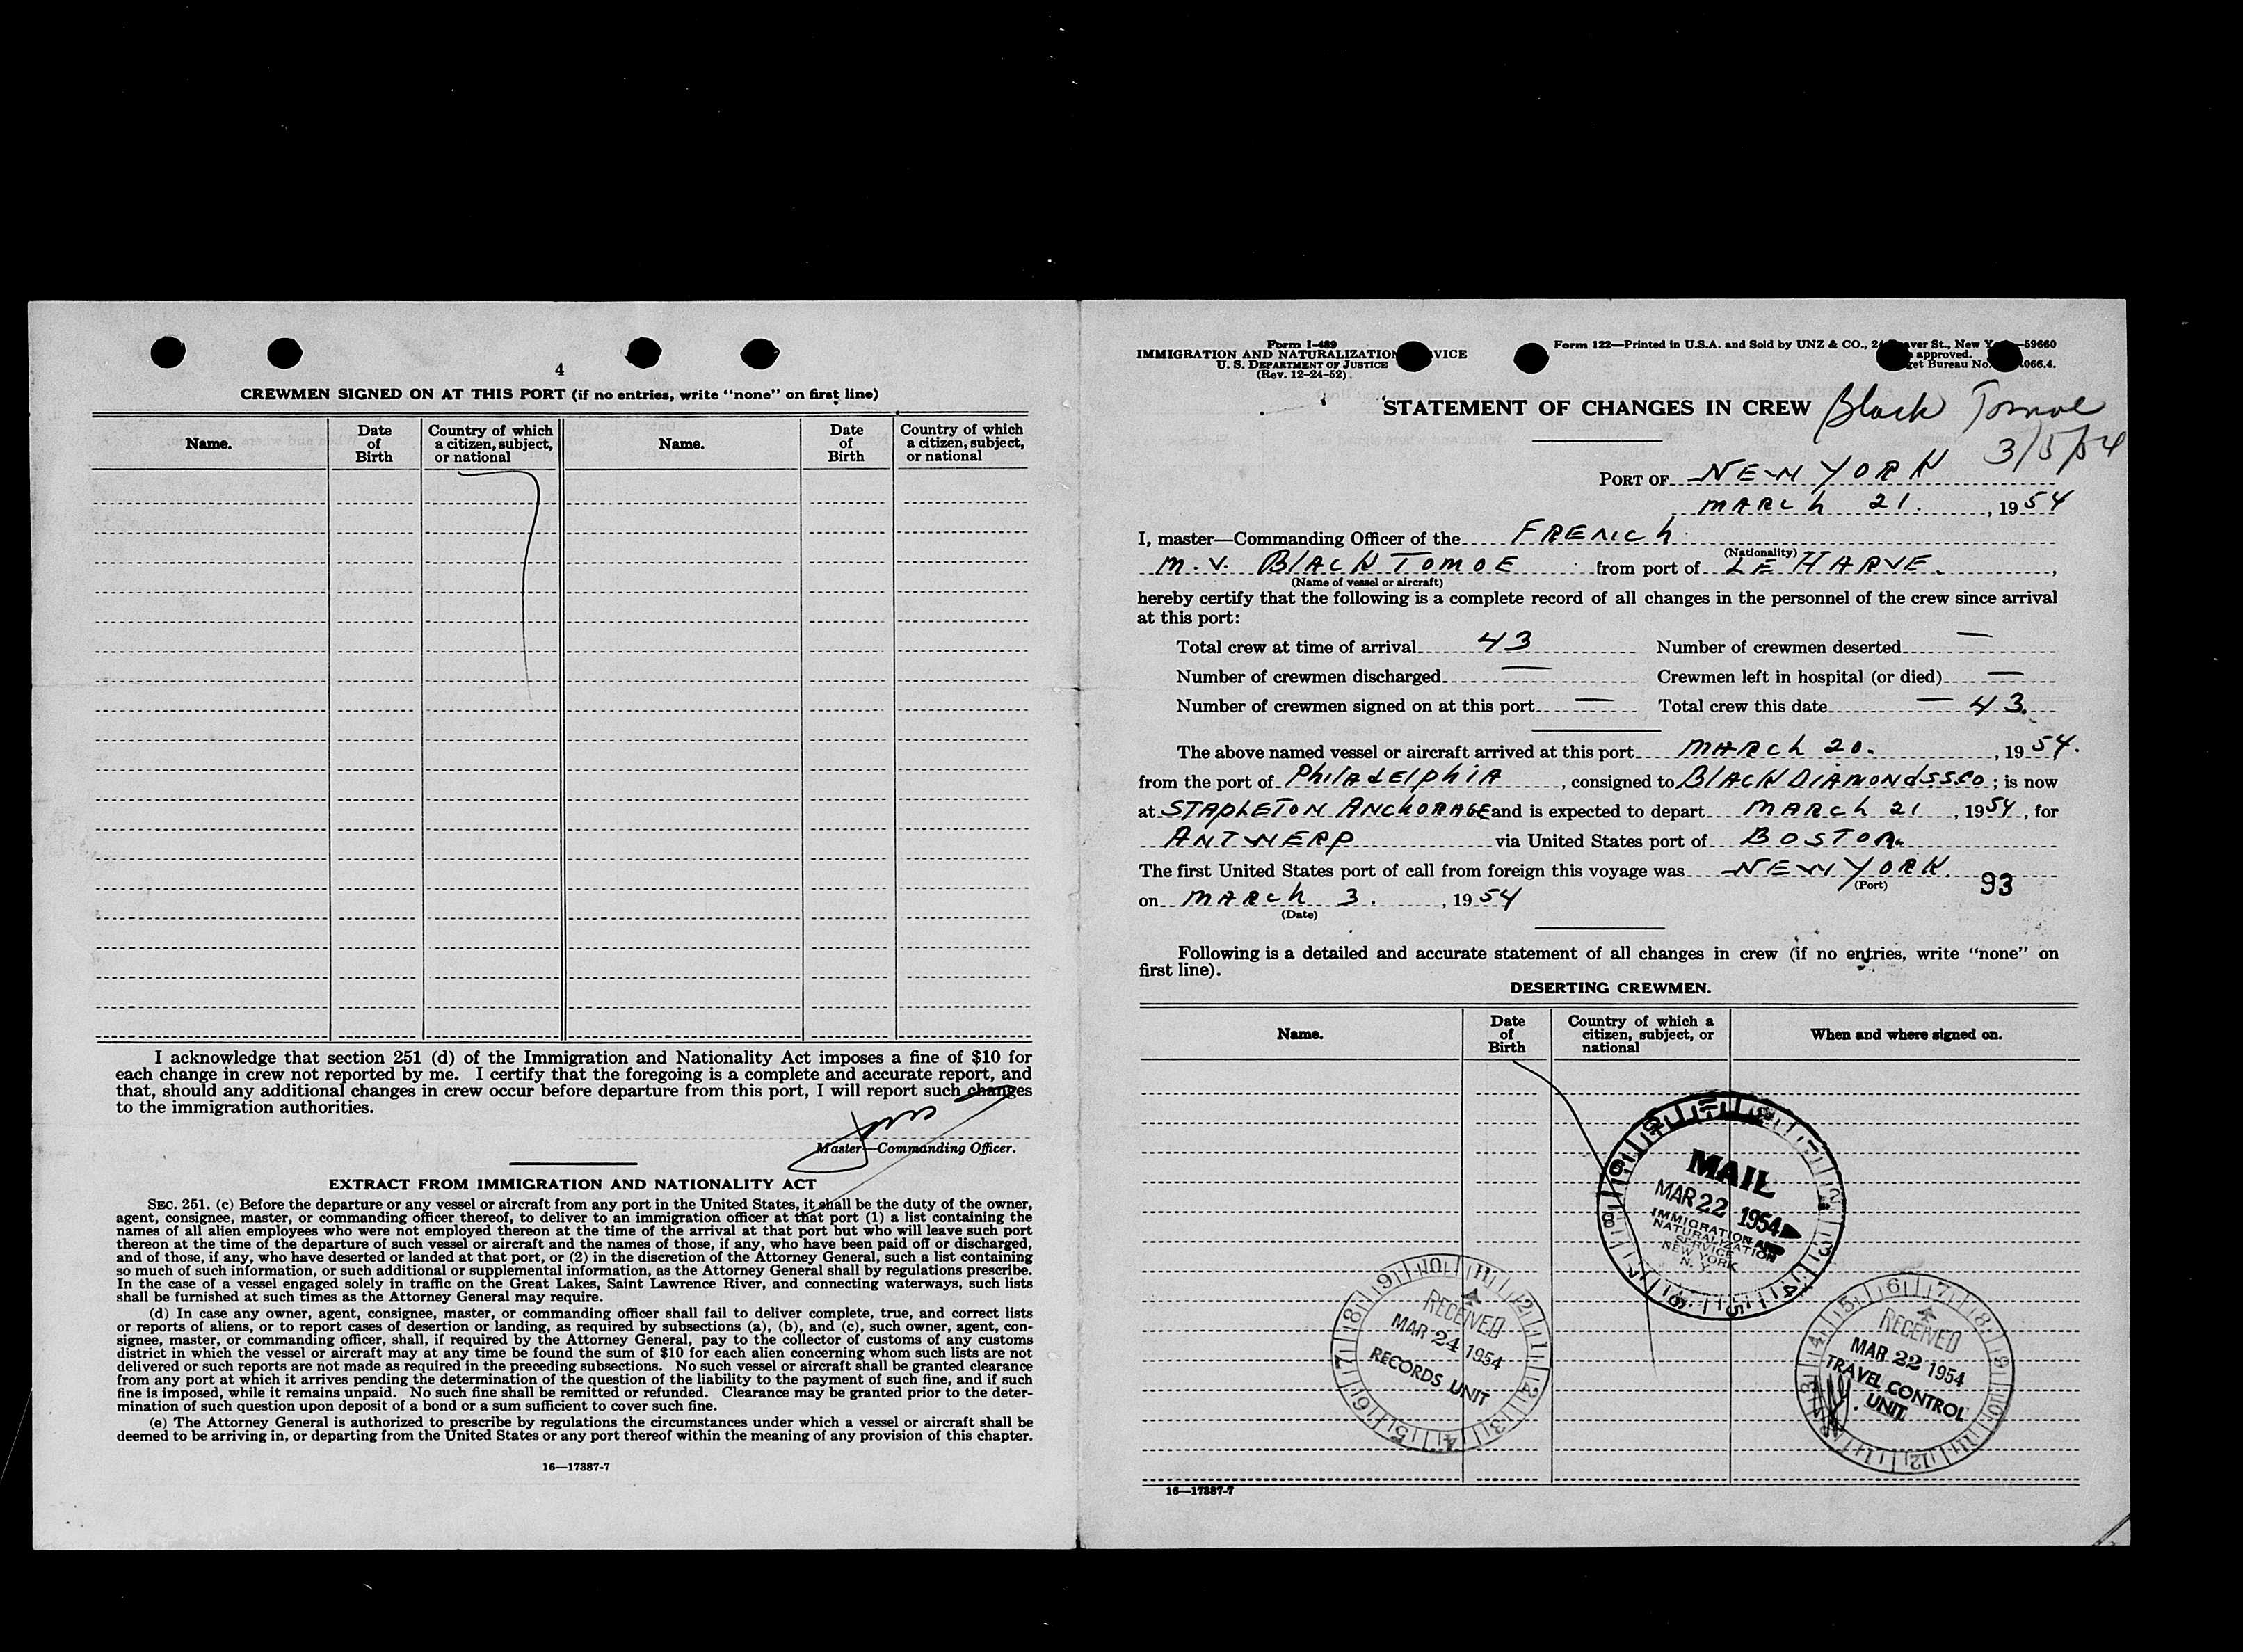 4
CREWMEN SIGNED ON AT THIS PORT (if no entries, write “none” on first line)
Name. Date of Birth Country of which a citizen, subject, or national Name. Date of Birth Country of which a citizen, subject, or national
I acknowledge that section 251 (d) of the Immigration and Nationality Act imposes a fine of $10 for
each change in crew not reported by me. I certify that the foregoing is a complete and accurate report, and
that, should any additional changes in crew occur before departure from this port, I will report such changes
to the immigration authorities.
Master—Commanding Officer.
EXTRACT FROM IMMIGRATION AND NATIONALITY ACT
SEC. 251. (c) Before the departure or any vessel or aircraft from any port in the United States, it shall be the duty of the owner,
agent, consignee, master, or commanding officer thereof, to deliver to an immigration officer at that port (1) a list containing the
names of all alien employees who were not employed thereon at the time of the arrival at that port but who will leave such port
thereon at the time of the departure of such vessel or aircraft and the names of those, if any, who have been paid off or discharged,
and of those, if any, who have deserted or landed at that port, or (2) in the discretion of the Attorney General, such a list containing
so much of such information, or such additional or supplemental information, as the Attorney General shall by regulations prescribe.
In the case of a vessel engaged solely in traffic on the Great Lakes, Saint Lawrence River, and connecting waterways, such lists
shall be furnished at such times as the Attorney General may require.
(d) In case any owner, agent, consignee, master, or commanding officer shall fail to deliver complete, true, and correct lists
or reports of aliens, or to report cases of desertion or landing, as required by subsections (a), (b), and (c), such owner, agent, con-
signee, master, or commanding officer, shall, if required by the Attorney General, pay to the collector of customs of any customs
district in which the vessel or aircraft may at any time be found the sum of $10 for each alien concerning whom such lists are not
delivered or such reports are not made as required in the preceding subsections. No such vessel or aircraft shall be granted clearance
from any port at which it arrives pending the determination of the question of the liability to the payment of such fine, and if such
fine is imposed, while it remains unpaid. No such fine shall be remitted or refunded. Clearance may be granted prior to the deter-
mination of such question upon deposit of a bond or a sum sufficient to cover such fine.
(e) The Attorney General is authorized to prescribe by regulations the circumstances under which a vessel or aircraft shall be
deemed to be arriving in, or departing from the United States or any port thereof within the meaning of any provision of this chapter.
16—17387-7
Form I-489
IMMIGRATION AND NATURALIZATION VICE
U. S. DEPARTMENT OF JUSTICE
(Rev. 12-24-52)
Form 122—Printed in U.S.A. and Sold by UNZ & CO., 24 aver St., New Y —59660
approved.
et Bureau No. 066.4.
STATEMENT OF CHANGES IN CREW Black Tomoe
3/5/54
PORT OF NEW YORK
MARCh 21. , 1954
I, master—Commanding Officer of the FRENCh
(Nationality)
M.V. BLACK TOMOE from port of LE HARVE.,
(Name of vessel or aircraft)
hereby certify that the following is a complete record of all changes in the personnel of the crew since arrival
at this port:
Total crew at time of arrival 43 Number of crewmen deserted —
Number of crewmen discharged — Crewmen left in hospital (or died) —
Number of crewmen signed on at this port — Total crew this date — 43.
The above named vessel or aircraft arrived at this port MARCh 20. , 1954.
from the port of PhilAdElphiA , consigned to BLACK DIAMONd S.S.CO ; is now
at STAPLETON ANChORAGE and is expected to depart MARCh 21 , 1954 , for
ANTWERP via United States port of BOSTON.
The first United States port of call from foreign this voyage was NEW YORK.
(Port)
93
on MARCh 3. , 1954
(Date)
Following is a detailed and accurate statement of all changes in crew (if no entries, write “none” on
first line).
DESERTING CREWMEN.
Name. Date of Birth Country of which a citizen, subject, or national When and where signed on.
MAIL
MAR 22 1954
IMMIGRATION AND
NATURALIZATION
SERVICE
NEW YORK
N. Y.
RECEIVED
MAR 24 1954
RECORDS UNIT
RECEIVED
MAR 22 1954
TRAVEL CONTROL
UNIT
16—17387-7